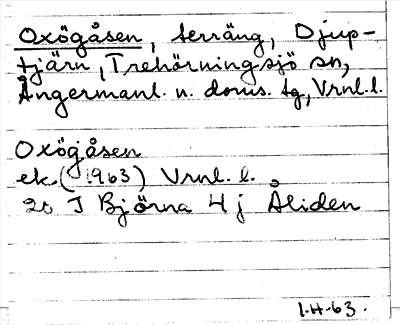 Oxögåsen, terräng, Djup-
tjärn, Trehörningsjö sn,
Ångermanl. n. doms. tg, Vrnl. l.
Oxögåsen
ek. (1963) Vrnl. l.
20 I Björna 4 j Åliden
1-H-63.